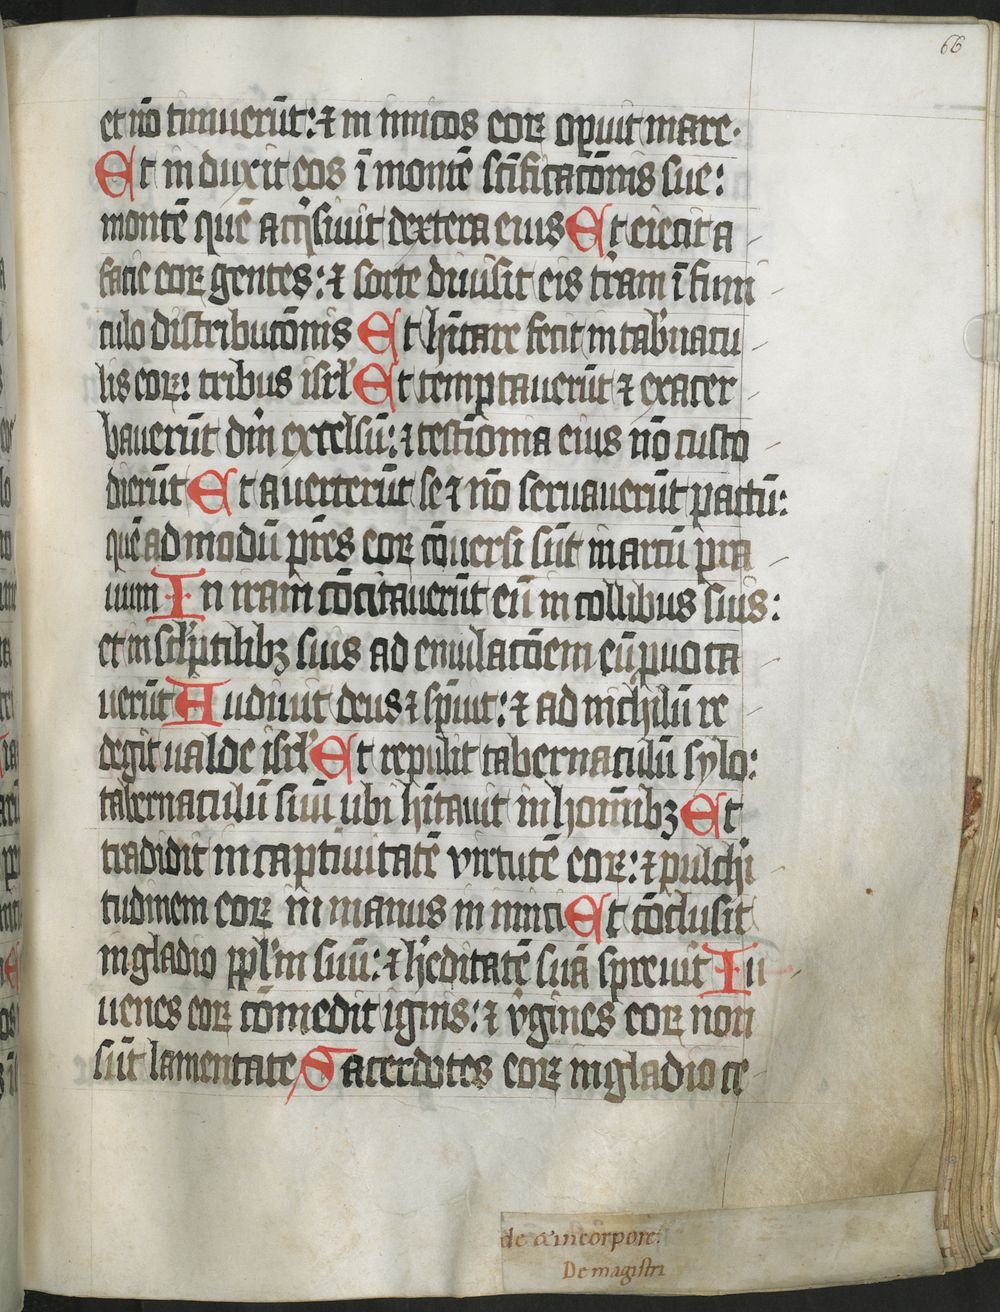 66
et nō timuerūt: ⁊ in imicos eoꝝ opuit mare.
Et induxit eos ī montē scīficatōnis sue:
montē quē acq̇siuit dextera eius Et eiecit a
facie eoꝝ gentes: ⁊ sorte diuisit eis tr̄am ī funi
culo distributōnis Et hītare fecit in tab'nacu
lis eoꝝ: tribus isrl' Et temptauerūt ⁊ exacer
bauerūt dm̄ excelsū: ⁊ testīōnia eius nō custo
dierūt Et auerterūt se ⁊ nō seruauerūt pactū:
quēadmodū pr̄es eoꝝ cōuersi sūt in arcū pra
uum In iram cōcitauerūt eū in collibus suis:
et in sculptilibꝫ suis ad emulatōem eū ꝓuoca
uerūt Audiuit deus ⁊ sp̄uit: ⁊ ad nichilū re
degit ualde isrl' Et repulit tabernaculū sylo:
tabernaculū suū ubi hītauit in homībꝫ Et
tradidit in captiuitatē virtutē eoꝝ: ⁊ pulchi
tudinem eoꝝ in manus inimici Et cōclusit
in gladio ppl'm suū: ⁊ h'editatē suā spreuit Iu
uenes eoꝝ cōmedit ignis: ⁊ v̓gines eoꝝ non
sūt lamentate Sacerdotes eoꝝ in gladio ce
de
De magistri